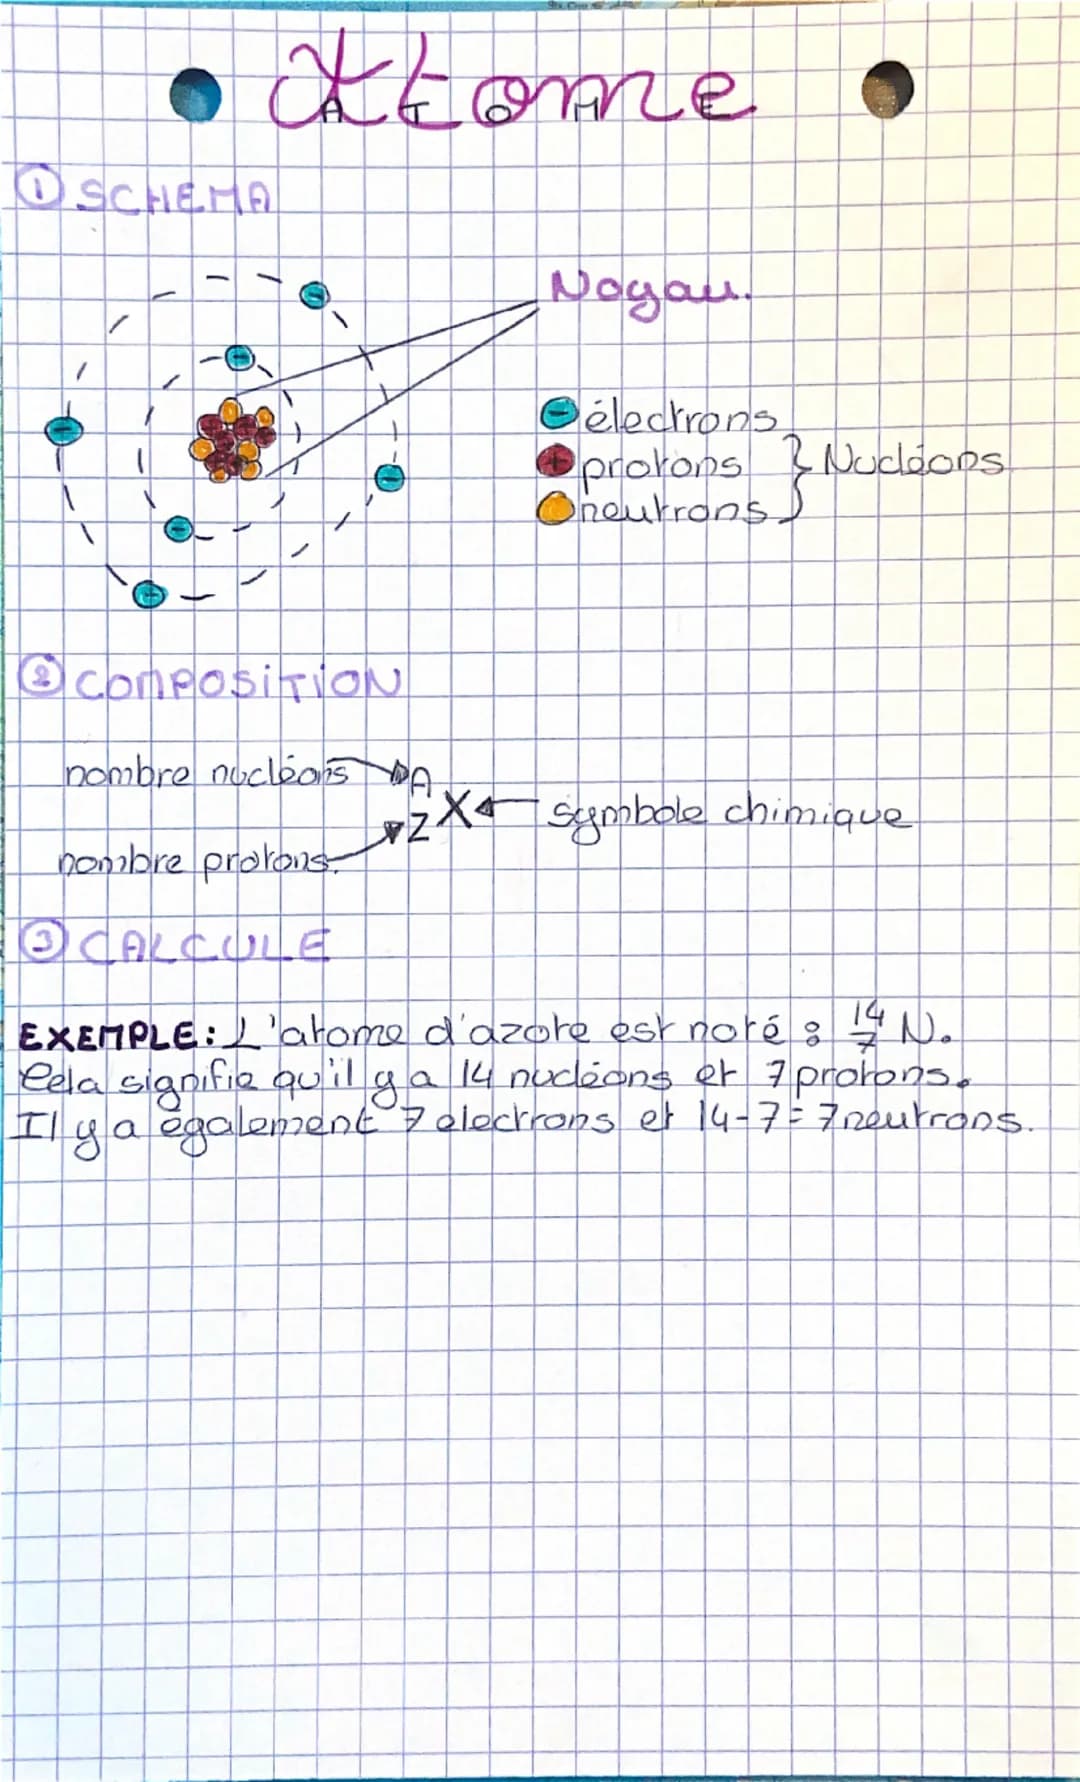 Atome
A T O M E
① SCHEMA
Noyau.
⊖ électrons
⊕ protons } Nucléons
neutrons
② COMPOSITION
nombre nucléons A
X symbole chimique
Z
nombre protons.
③ CALCULE
EXEMPLE: L'atome d'azote est noté : ¹⁴₇ N.
Cela signifie qu'il y a 14 nucléons et 7 protons.
Il y a également 7 electrons et 14-7=7 neutrons.